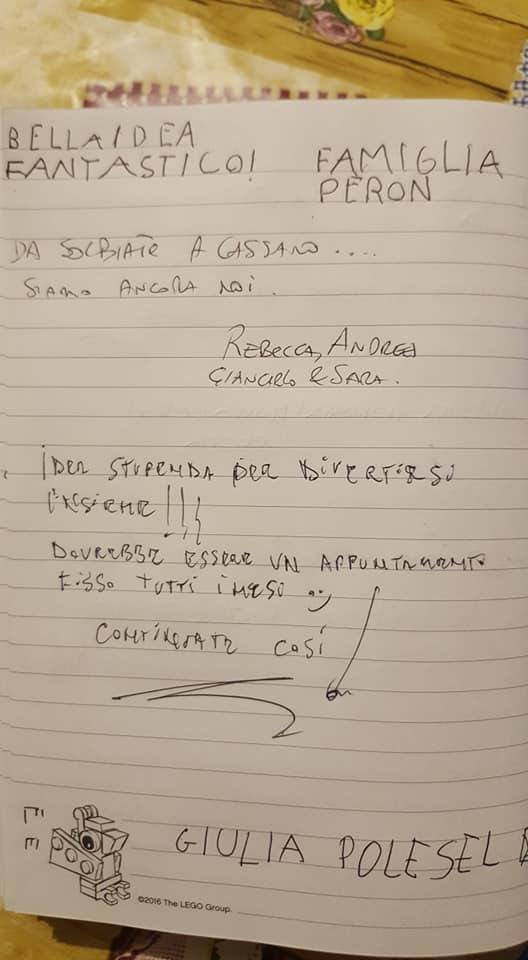 BELLA IDEA
FANTASTICO!
FAMIGLIA
PERON
DA SOLBIATE A CASSANO....
SIAMO ANCORA NOI.
REBECCA, ANDREA
GIANCARLO E SARA.
IDEA STUPENDA PER DIVERTIRSI
INSIEME!!!
DOVREBBE ESSERE UN APPUNTAMENTO
FISSO TUTTI I MESI :)
CONTINUATE COSÍ
GIULIA POLESEL
©2016 The LEGO Group.